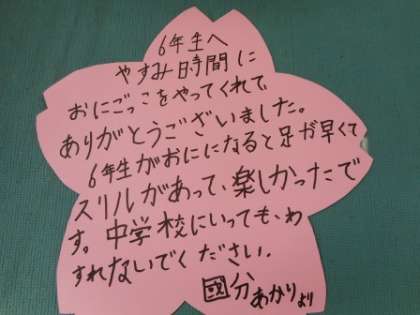 6年生へ
やすみ時間に
おにごっこをやってくれて、
ありがとうございました。
6年生がおにになると足が早くて
スリルがあって、楽しかったで
す。中学校にいっても、わ
すれないでください.
國分あかりより